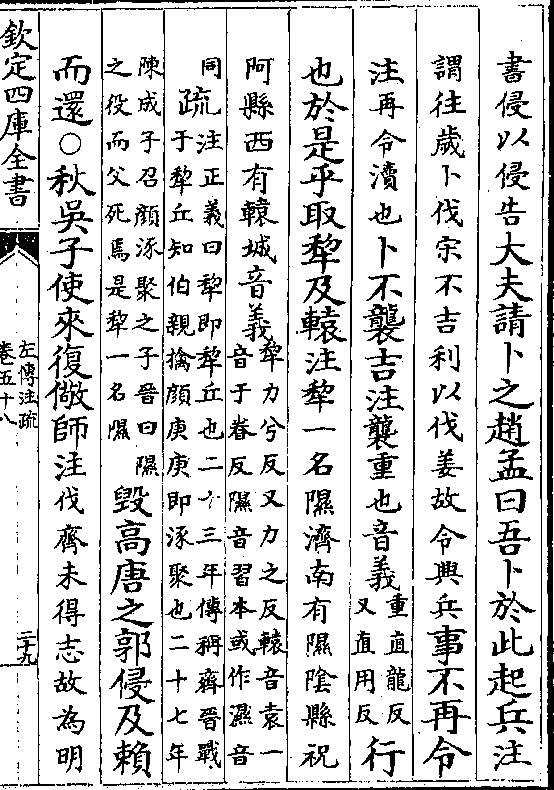 書侵以侵告大夫請卜之趙孟曰吾卜於此起兵注
謂往歲卜伐宋不吉利以伐姜故今興兵事不再令
注再令瀆也卜不襲吉注襲重也音義重直龍反又直用反行
也於是乎取犂及轅注犂一名隰濟南有隰陰縣祝
阿縣西有轅城音義犂力兮反又力之反轅音袁一音于眷反隰音習本或作濕音
同疏注正義曰犂即犂丘也二十三年傳稱齊晉戰于犂丘知伯親擒顔庚庚即涿聚也二十七年
陳成子召顔涿聚之子晉曰隰之役而父死焉是犂一名隰毀高唐之郭侵及賴
而還○秋吳子使來復儆師注伐齊未得志故為明
欽定四庫全書
左傳注疏
卷五十八
二十九